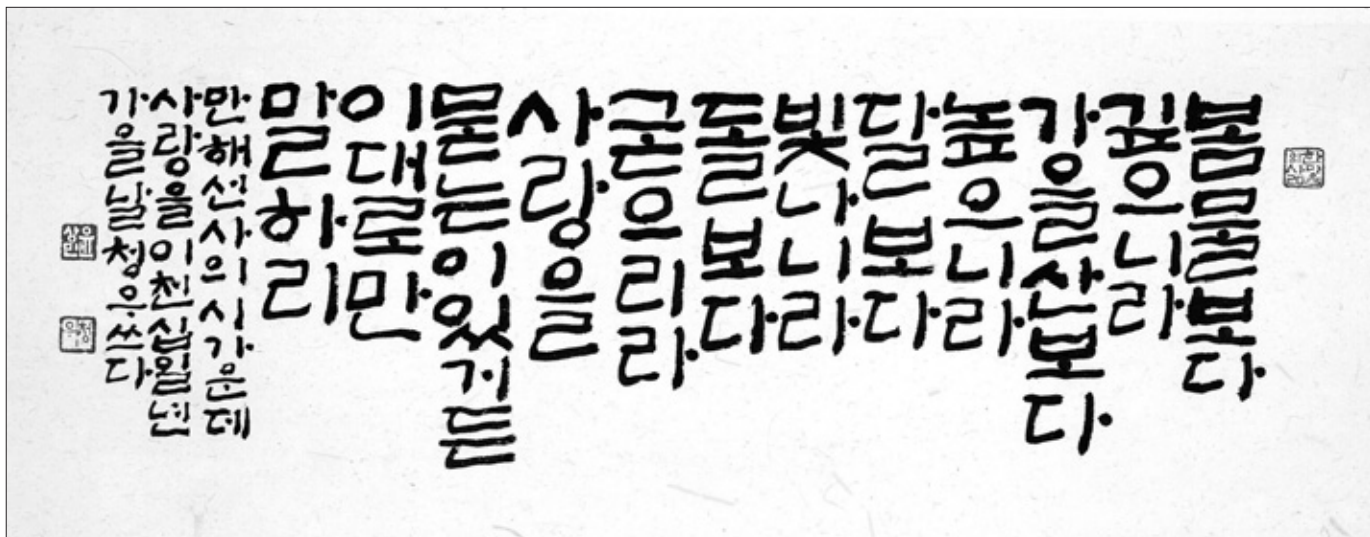 봄물보다
깊으니라
가을산보다
높으니라
달보다
빛나니라
돌보다
굳으리라
사랑을
묻는이있거든
이대로만
말하리
만해선사의시가운데
사랑을이천십일년
가을날청우쓰다